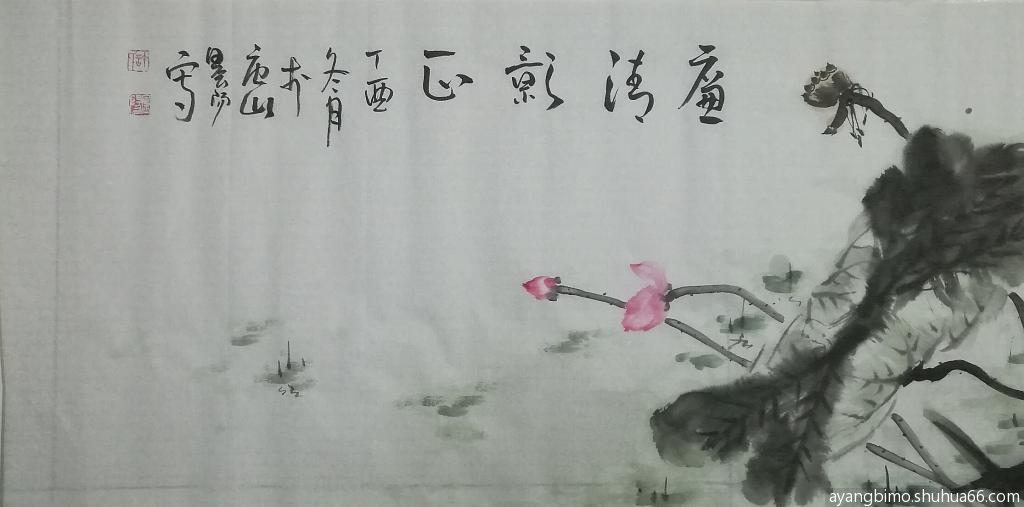 廉清影正
丁酉
冬月
于
唐山
写
ayangbimo.shuhua66.com